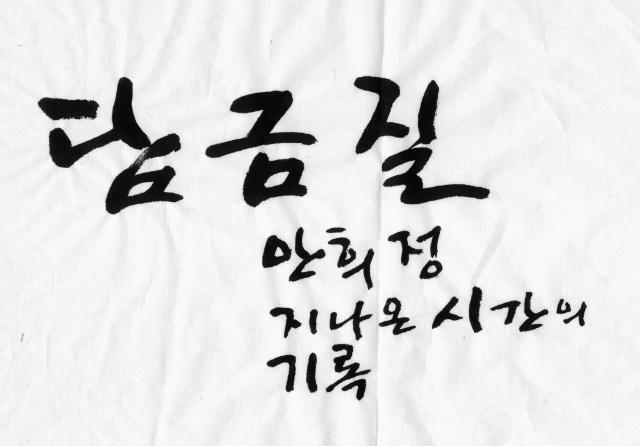 담금질
안희정
지나온 시간의
기록